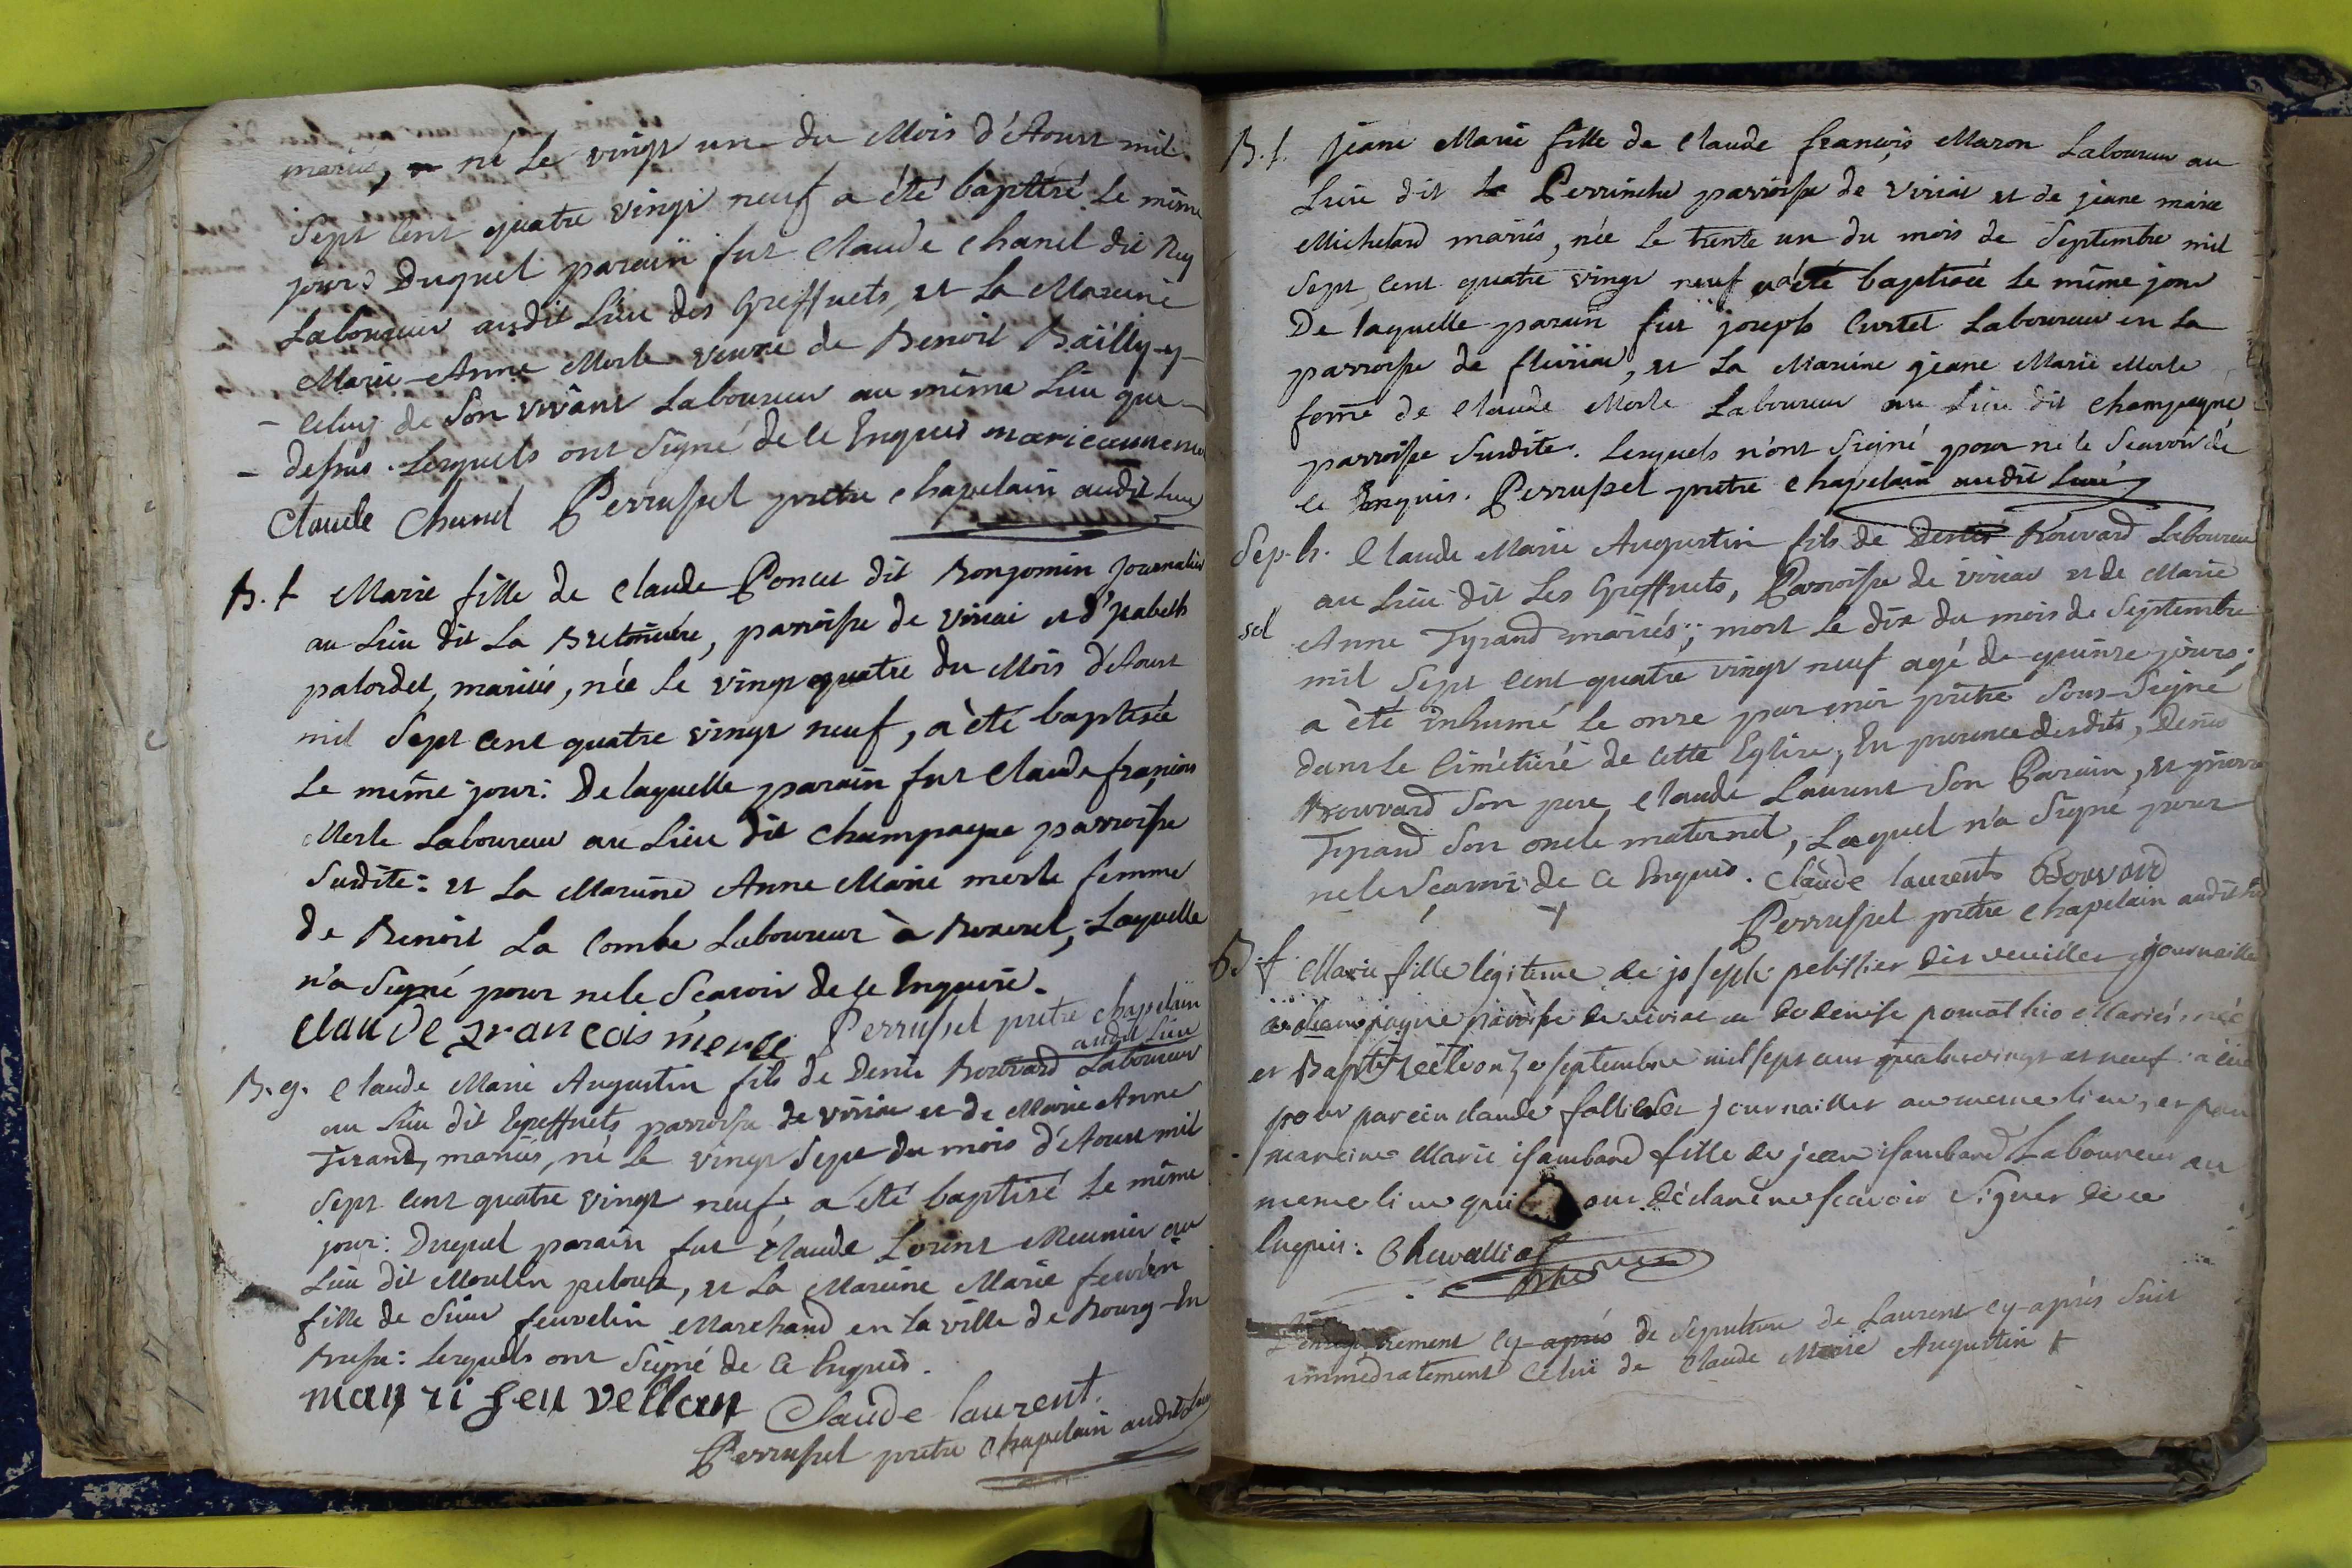 mariés, né le vingt un du Mois d'Aoust mil
Sept cent quatre vingt neuf a été baptisé le même
jour: Duquel parain fut Claude Chanel dit Rey
Laboureur audit Lieu des Greffets, et la Maraine
Marie-Anne Merle veuve de Benoit Bailly-
- Celuy de Son vivant Laboureur au même Lieu que-
- dessus. Lesquels ont Signé de ce Enquis
Claude Chanel Perrussel pretre chapelain audit Lieu
B. f Marie fille de Claude Poncet dit Bonjomin Journalier
au Lieu dit La Bretonière, parroisse de viriat et d'ysabeth
palordet, mariés, née le vingt quatre du Mois d'Aoust
mil Sept cent quatre vingt neuf, a été baptisée
Le même jour: De laquelle parain fut Claude françois
Merle Laboureur au Lieu dit Champagne parroisse
Susdite: et La Maraine Anne Marie merle femme
de Benoit La Combe Laboureur à, Laquelle
n'a Signé pour ne le Scavoir de ce Enquise.
claude francois merle Perrussel pretre chapelain
audit Lieu
B. g. Claude Marie Augustin fils de Denis Bouvard Laboureur
au Lieu dit Greffets parroisse de viriat et de Marie Anne
Tirand, mariés, né le vingt Sept du mois d'Aoust mil
Sept cent quatre vingt neuf a été baptisé le même
jour: Duquel parain fut Claude Lorent Meunier au
Lieu dit Moulin peloux, et La Maraine Marie
fille de Sieur feuvelin Marchand en la ville de Bourg-En
Bresse: Lesquels ont Signé de ce Enquis.
Claude laurent.
Perrussel pretre chapelain audit Lieu
B. f. jeane Marie fille de Claude françois Maron Laboureur au
Lieu dit Perrinche parroisse de viriat et de jeane marie
Michelard mariés, née le trente un du mois de Septembre mil
Sept cent quatre vingt neuf a été baptisée le même jour
De laquelle parain fut joseph Curtet Laboureur en La
parroisse de fleuriat, et La Maraine jeane Marie Merle
feme de Claude Merle Laboureur au Lieu dit Champagne
parroisse Susdite. Lesquels n'ont Signé pour ne le Scavoir de
ce Enquis. Perrussel pretre chapelain audit Lieu
Sep. h. Claude Marie Augustin fils de Denis Bouvard Laboureur
au Lieu dit Les Greffets, Parroisse de viriat et de Marie
sol Anne Tyrand mariés; mort le dix du mois de Septembre
mil Sept cent quatre vingt neuf agé de quinze jours;
a été inhumé le onze par moi prêtre Sous-Signé
dans le Cimétiére de cette Eglise, En presence desdits, Denis
Bouvard Son pere, Claude Laurent Son Parain, et pierre
Tyrand Son oncle maternel, Lequel n'a Signé pour
ne le Scavoir de ce Enquis. Claude laurent Bouvard
Perrussel pretre chapelain audit
B. f. Marie fille légitime de joseph pelissier dit veuiller journaillier
à champagne parroisse de viriat et de denise pomathio Mariés, née
et Baptisée le onze septembre mil sept cent quatre vingt et neuf a eu
pour parein claude journaillier au meme lieu, et pour
mareine Marie isambard fille de jean isambard Laboureur au
meme lieu qui ont déclaré ne scavoir Signer de ce
Enquis: Chevallier
L'enregistrement cy-après de Sepulture de Laurent cy-après Suit
immédiatement celui de Claude Marie Augustin +